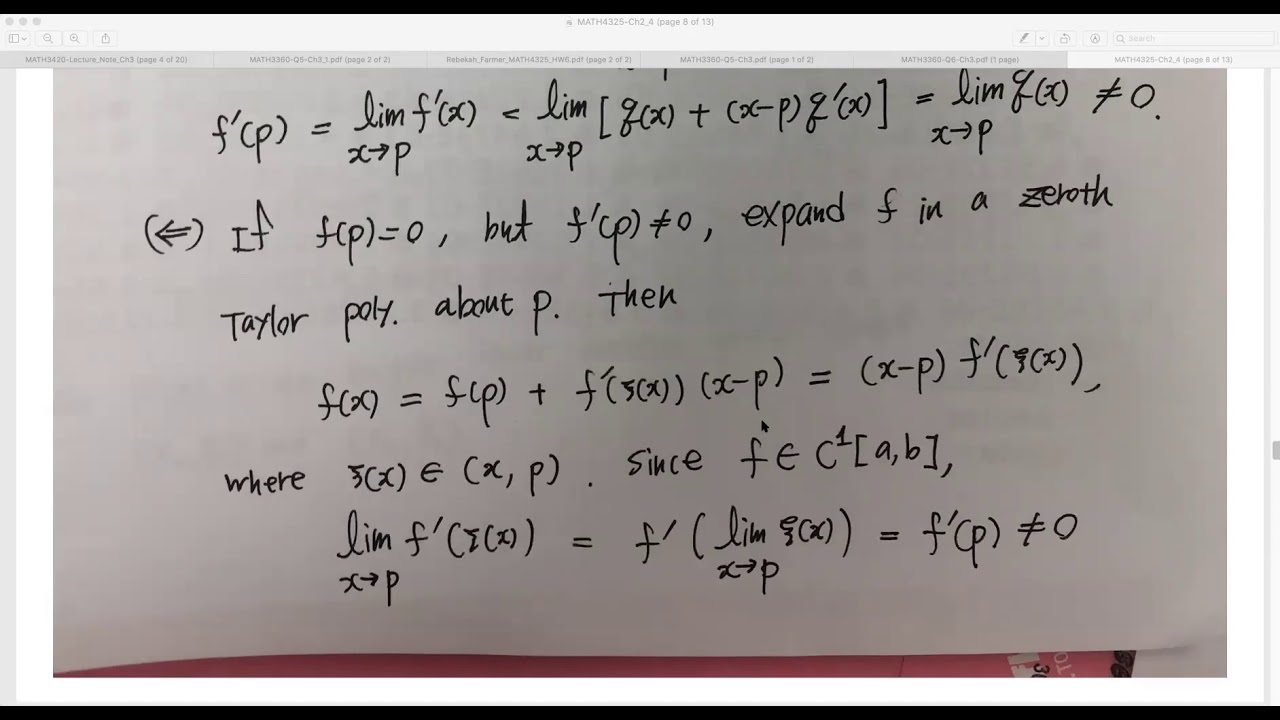 MATH4325-Ch2_4 (page 8 of 13)
Search
MATH3420-Lecture_Note_Ch3 (page 4 of 20)
MATH3360-Q5-Ch3_1.pdf (page 2 of 2)
Rebekah_Farmer_MATH4325_HW6.pdf (page 2 of 2)
MATH3360-Q5-Ch3.pdf (page 1 of 2)
MATH3360-Q6-Ch3.pdf (1 page)
MATH4325-Ch2_4 (page 8 of 13)
f'(p) = lim f'(x) = lim [q(x) + (x-p)q'(x)] = lim q(x) ≠ 0.
x→p x→p x→p
(⇐) If f(p)=0, but f'(p)≠0, expand f in a zeroth
Taylor poly. about p. Then
f(x) = f(p) + f'(ξ(x))(x-p) = (x-p) f'(ξ(x)),
where ξ(x) ∈ (x, p). Since f ∈ C¹[a,b],
lim f'(ξ(x)) = f'(lim ξ(x)) = f'(p) ≠ 0
x→p x→p